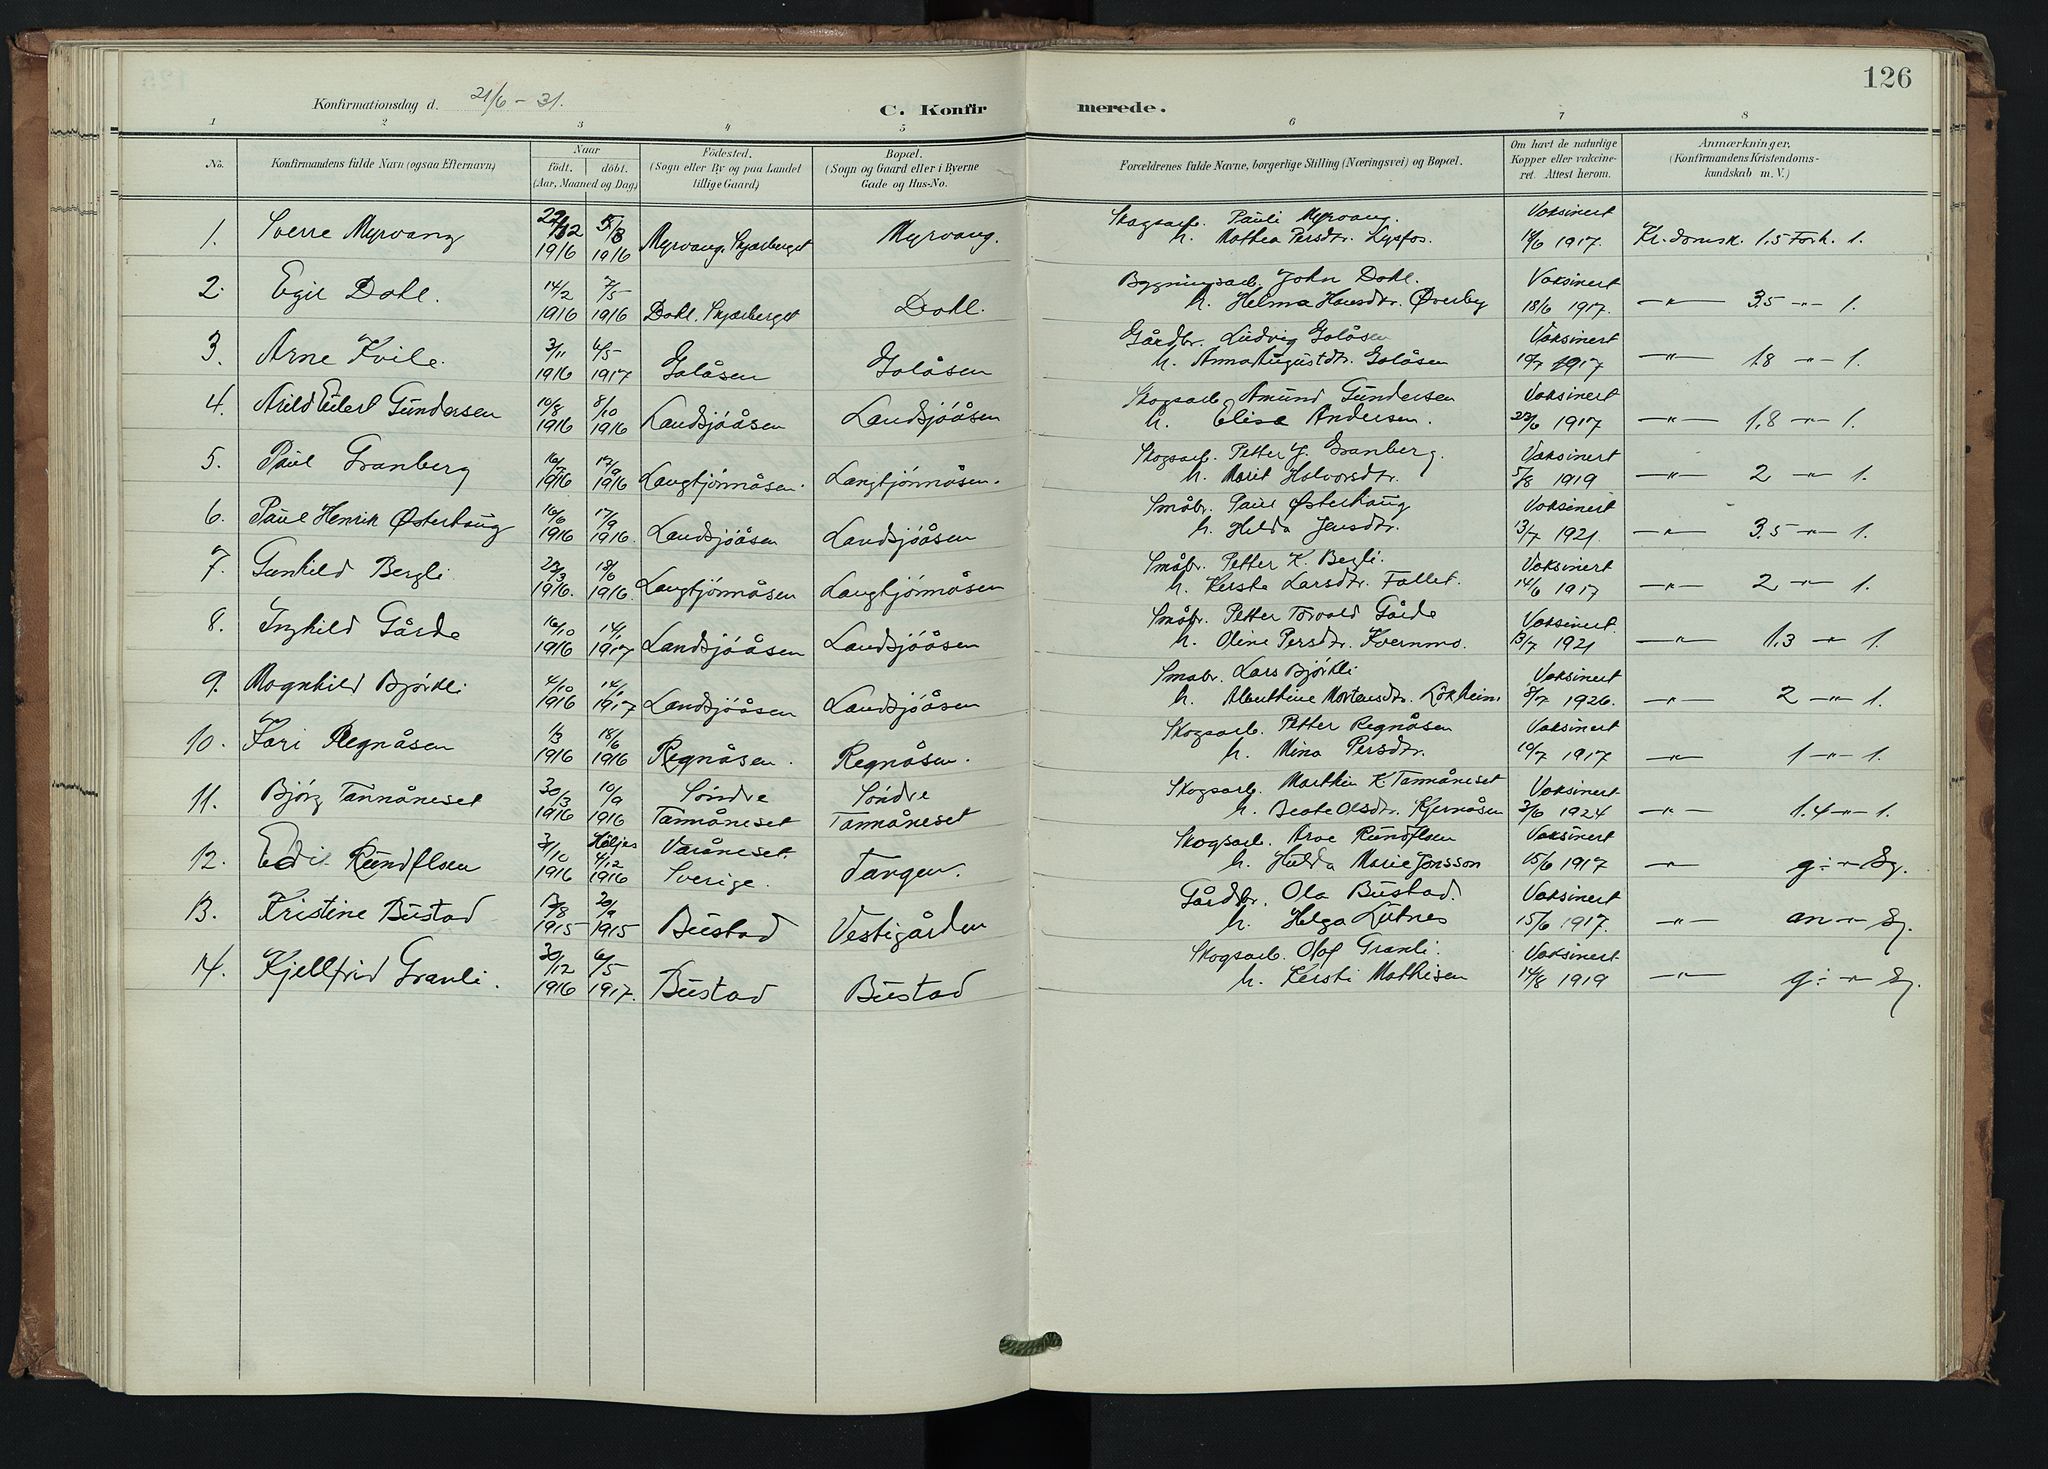 126
Konfirmationsdag d. 21/6 - 31.
C. Konfirmerede.
1 2 3 4 5 6 7 8
No. Konfirmandens fulde Navn (ogsaa Efternavn) Naar født, døbt. (Aar, Maaned og Dag) Fødested. (Sogn eller By og paa Landet tillige Gaard) Bopæl. (Sogn og Gaard eller i Byerne Gade og Hus-No. Forældrenes fulde Navne, borgerlige Stilling (Næringsvei) og Bopæl. Om havt de naturlige Kopper eller vakcineret. Attest herom. Anmærkninger, (Konfirmandens Kristendomskundskab m. V.)
1. Sverre Myrvang 1916 1916 Myrvang, Skjærberget Myrvang. Skogsarb. Pauli Myrvang. h. Mathea Persdtr. Lysfos. Voksinert 1917. Kr.domsk. 1,5 Forh. 1.
2. Egil Dahl. 14/2 1916 7/5 1916 Dahl. Skjærberget Dahl. Bygningsarb. John Dahl. h. Helma Hansdtr. Øverby Vaksinert 18/6 1917. —"— 3,5 —"— 1.
3. Arne Kvile. 3/11 1916 6/5 1917 Galåsen Galåsen Gårdbr. Ludvig Galåsen h. Anna Augustdtr. Galåsen Vaksinert 10/7 1917 —"— 1,8 —"— 1.
4. Arild Eilert Gundersen 10/8 1916 8/10 1916 Landsjöåsen Landsjöåsen Skogsarb. Amund Gundersen h. Elise Andersen. Vaksinert 22/6 1917 —"— 1,8 —"— 1.
5. Paul Granberg 1916 17/9 1916 Langtjörnåsen. Langtjörnåsen. Skogsarb. Petter J. Granberg. h. Marit Halvorsdtr. Vaksinert 5/8 1919 —"— 2 —"— 1.
6. Paul Henrik Østerhaug 16/6 1916 17/9 1916. Landsjöåsen Landsjöåsen Småbr. Paul Østerhaug h. Hilda Jensdtr. Vaksinert 13/7 1921. —"— 3,5 —"— 1.
7. Gunhild Bergli. 23/3 1916. 18/6 1916. Langtjörnåsen Langtjörnåsen Småbr. Petter K. Bergli. h. Kersta Larsdtr. Fallet. Vaksinert 14/6 1917 —"— 2 —"— 1.
8. Inghild Gårde 16/10 1916 14/1 1917 Landsjöåsen Landsjöåsen Småbr. Petter Torvald Gårde h. Oline Persdtr. Kvernmo. Vaksinert. 13/7 1921 —"— 1,3 —"— 1.
9. Magnhild Björkli 4/10 1916 14/1 1917 Landsjöåsen Landsjöåsen Småbr. Lars Björkli h. Mortensdtr. Lökheim Vaksinert 1926. —"— 2 —"— 1.
10. Kari Regnåsen 1/3 1916 18/6 1916 Regnåsen. Regnåsen. Skogsarb. Petter Regnåsen h. Mina Persdtr. Vaksinert 10/7 1917 —"— 1 —"— 1.
11. Björg Tannåneset 30/3 1916 10/9 1916 Söndre Tannåneset Söndre Tannåneset Skogsarb. Marthin K. Tannåneset h. Beate Olsdtr. Kjernåsen Vaksinert 3/6 1924 —"— 1.4 —"— 1.
12. Edi Rundflsen 3/10 1916 Höljes 4/12 1916 Varåneset. Sverige. Tangen. Skogsarb. Arve Rundflsen h. Hulda Marie Jonsson Vaksinert 15/6 1917 —"— g÷ —"— Sg.
13. Kristine Bustad 1915 20/9 1915 Bustad Vestigården Gårdbr. Ola Bustad. h. Helga Lutnes Vaksinert 15/6 1917. —"— an —"— Sg.
14. Kjellfrid Granli. 30/12 1916 6/5 1917. Bustad Bustad Skogsarb. Olaf Granli. h. Kersti Mathisen Vaksinert 14/8 1919 —"— g÷ —"— Sg.